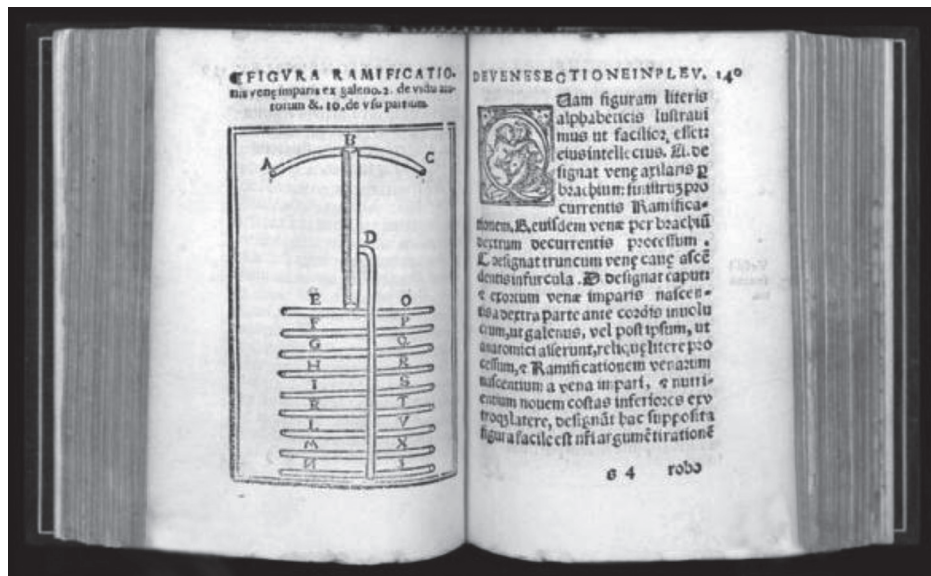 FIGVRA RAMIFICATIO-
nis venę imparis ex galeno. 2. de victu acu-
torum &. 10. de vsu partium.
B
A
C
D
E
O
F
P
G
Q
H
R
I
S
R
T
L
V
M
X
N
3
DE VENE SECTIONE IN PLEV. 140
Qam figuram literis
alphabeticis lustraui
mus ut facilior, esset
eius intellectus. A. de
signat venę axilaris p
brachium sinistrum pro
currentis Ramifica-
tionem, B. eiusdem venæ per brachiũ
dextrum decurrentis processum.
C designat truncum venę cauę ascẽ
dentis in furcula. D designat caput
⁊ exortum venæ imparis nascen-
tis a dextra parte ante cordis inuolu
crum, ut galenus, vel post ipsum, ut
anatomici asserunt, reliquę litere pro
cessum, ⁊ Ramificationem venarum
nascentium a vena impari, ⁊ nutri-
entium nouem costas inferiores exv
troq; latere, designãt hac supposita
figura facile est nr̃i argumẽti rationẽ
s 4 robo